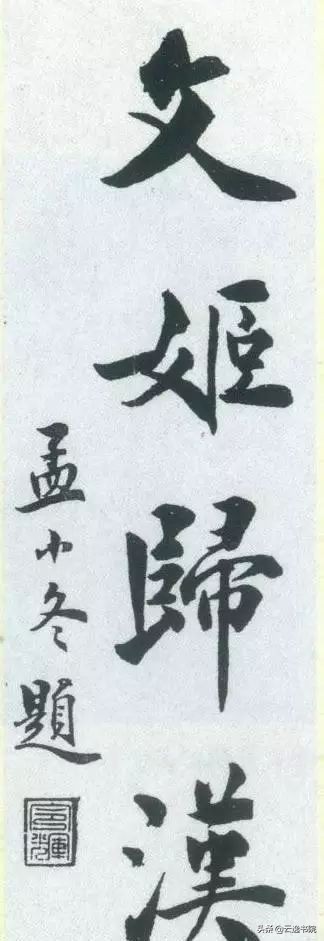 文姬歸漢
孟小冬題
令輝
头条@云逸书院